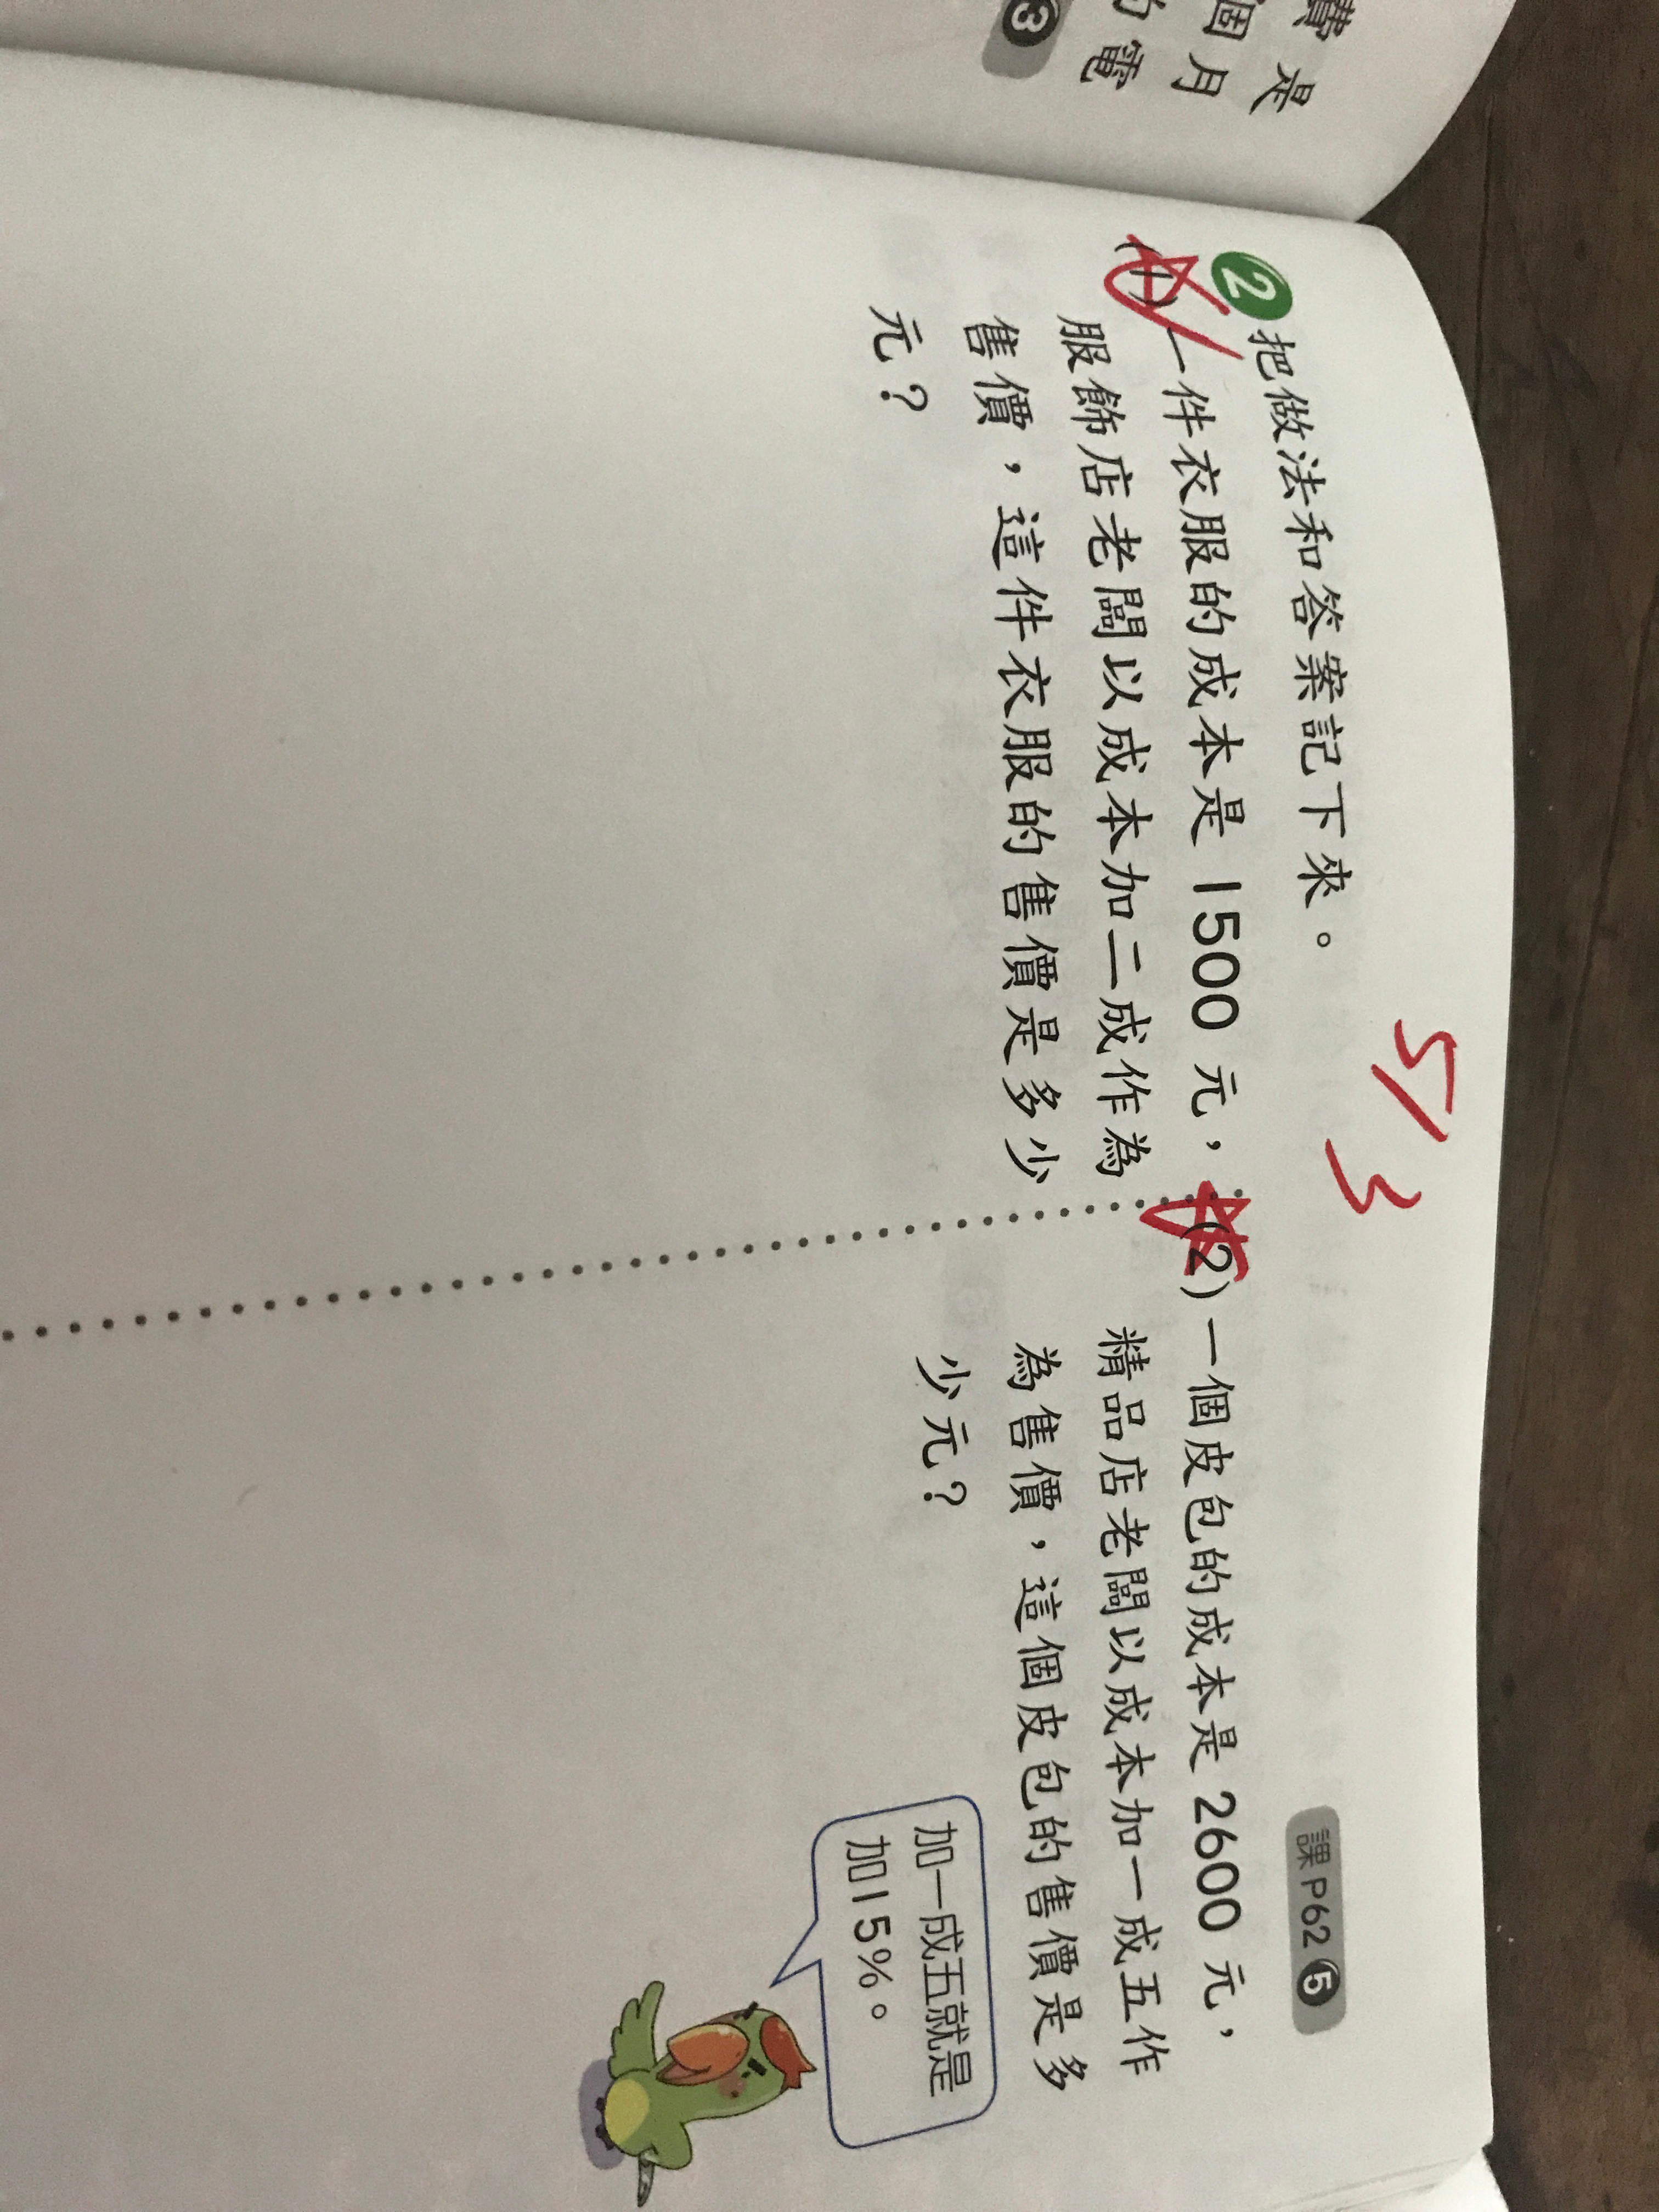 費是
個月
的電
3
5/3
課P62 5
2 把做法和答案記下來。
(1)一件衣服的成本是1500元，
服飾店老闆以成本加二成作為
售價，這件衣服的售價是多少
元？
(2)一個皮包的成本是2600元，
精品店老闆以成本加一成五作
為售價，這個皮包的售價是多
少元？
加一成五就是
加15%。